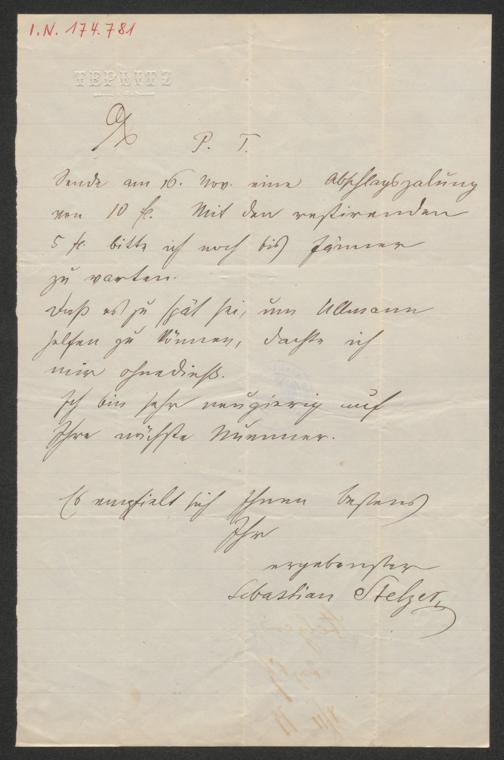 I.N. 174.781
TEPLITZ
P. T.
Sende am 16. Nov. eine Abschlagszalung
von 10 fl. Mit den restirenden
5 fl. bitte ich noch bis Jänner
zu warten.
Daß es zu spät sei, um Ullmann
helfen zu können, dachte ich
mir ohnedieß.
Ich bin sehr neugierig auf
Ihre nächste Nummer.
Es empfielt sich Ihnen bestens
Ihr
ergebenster
Sebastian Stelzer